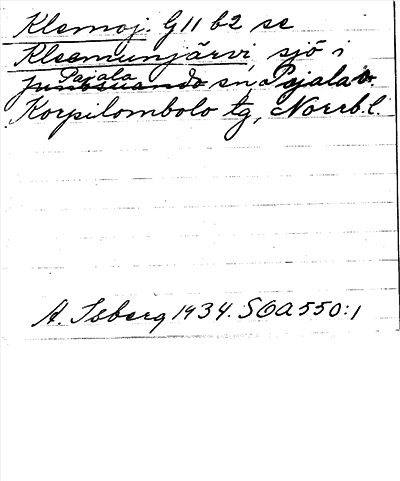 Klemoj. G11 b2 se
Kleemunjärvi, sjö i
Pajala
Junosuando sn Pajala o.
Korpilombolo tg, Norrb.l.
A. Isberg 1934. SOA 550:1